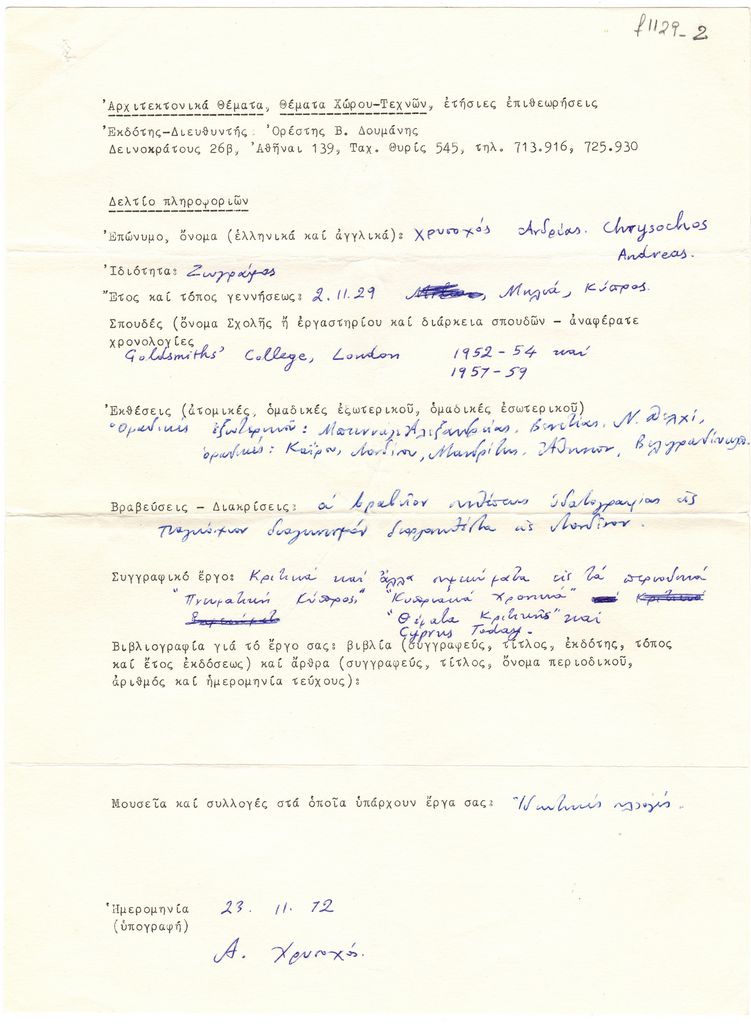 f1129-2
Ἀρχιτεκτονικά Θέματα, Θέματα Χώρου-Τεχνῶν, ἐτήσιες ἐπιθεωρήσεις
Ἐκδότης-Διευθυντής: Ὀρέστης Β. Δουμάνης
Δεινοκράτους 26β, Ἀθῆναι 139, Ταχ. Θυρίς 545, τηλ. 713.916, 725.930
Δελτίο πληροφοριῶν
Ἐπώνυμο, ὄνομα (ἑλληνικά καί ἀγγλικά): Χρυσοχός Ἀνδρέας. Chrysochos
Andreas.
Ἰδιότητα: Ζωγράφος
Ἔτος καί τόπος γεννήσεως: 2.11.29 Μηλιά, Κύπρος.
Σπουδές (ὄνομα Σχολῆς ἤ ἐργαστηρίου καί διάρκεια σπουδῶν - ἀναφέρατε
χρονολογίες
Goldsmiths' College, London 1952-54 καί
1957-59
Ἐκθέσεις (ἀτομικές, ὁμαδικές ἐξωτερικοῦ, ὁμαδικές ἐσωτερικοῦ)
Ὁμαδικές ἐξωτερικοῦ: Μπιεννάλε Ἀλεξανδρείας, Βενετίας, Ν. Δελχί,
ὁμαδικές: Καΐρου, Λονδίνου, Μαδρίτης, Ἀθηνῶν,
Βραβεύσεις - Διακρίσεις: α΄ βραβεῖον ἐκθέσεως ὑδατογραφίας εἰς
παγκόσμιον διαγωνισμόν διοργανωθέντα εἰς Λονδῖνον.
Συγγραφικό ἔργο: Κριτικά καί ἄλλα σημειώματα εἰς τά περιοδικά
"Πνευματική Κύπρος," "Κυπριακά Χρονικά"
"Θέματα Κριτικῆς" καί
Cyprus Today.
Βιβλιογραφία γιά τό ἔργο σας: βιβλία (συγγραφεύς, τίτλος, ἐκδότης, τόπος
καί ἔτος ἐκδόσεως) καί ἄρθρα (συγγραφεύς, τίτλος, ὄνομα περιοδικοῦ,
ἀριθμός καί ἡμερομηνία τεύχους):
Μουσεῖα καί συλλογές στά ὁποῖα ὑπάρχουν ἔργα σας: Ἰδιωτικές συλλογές.
Ἡμερομηνία 23. 11. 72
(ὑπογραφή)
Α. Χρυσοχός.